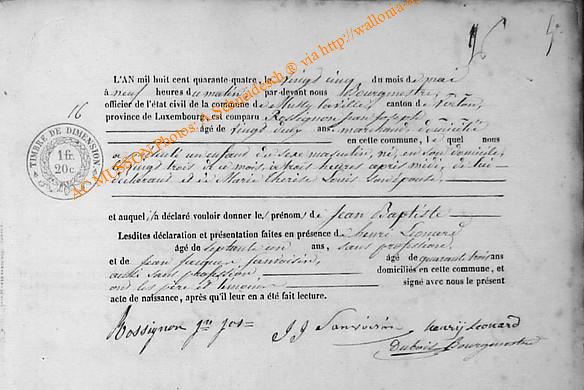 16
TIMBRE DE DIMENSION
1 fr.
20 c.
Ac MUSSON Photos: A. Schleidesch ® via http://wallonia-a
L'AN mil huit cent quarante-quatre, le vingt cinq du mois de mai
à neuf heures du matin par-devant nous Bourgmestre,
officier de l'état civil de la commune de Mussy la ville canton de Virton,
province de Luxembourg, est comparu Rossignon Jean Joseph
âgé de vingt deux ans marchand, domicilié
en cette commune, lequel nous
a présenté un enfant du sexe masculin, né, en son domicile,
le vingt trois de ce mois, à trois heures après midi, de lui
déclarant et de Marie Thérèse Louis son épouse,
et auquel il a déclaré vouloir donner le prénom de Jean Baptiste
Lesdites déclaration et présentation faites en présence de henri Léonard
âgé de septante un ans, sans profession,
et de jean jacques âgé de quarante trois ans
aussi sans profession domiciliés en cette commune, et
ont les père et témoins signé avec nous le présent
acte de naissance, après qu'il leur en a été fait lecture.
Rossignon jn jos
J J
henrij Leonard
Dubois Bourgmestre